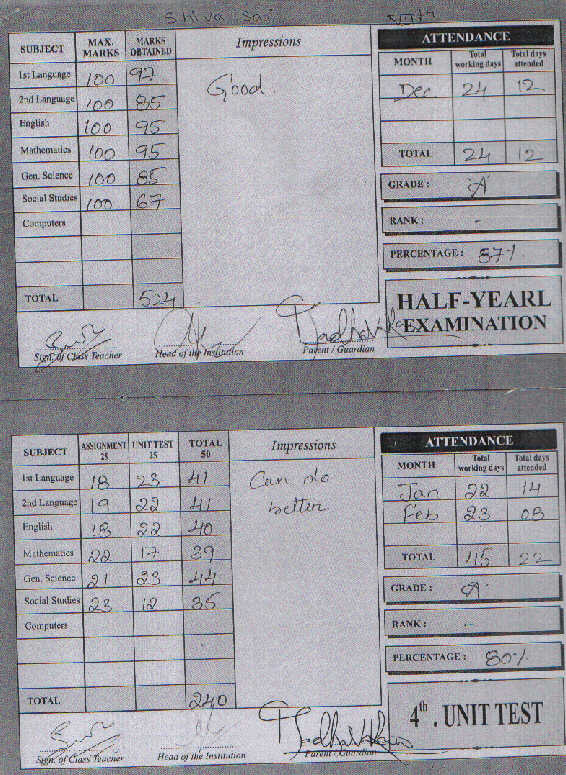 Shiva Sai
SUBJECT MAX. MARKS MARKS OBTAINED Impressions
1st Language 100 97
2nd Language 100 85
English 100 95
Mathematics 100 95
Gen. Science 100 85
Social Studies 100 67
Computers
TOTAL 524
Good
Sign. of Class Teacher Head of the Institution Parent / Guardian
ATTENDANCE
MONTH Total working days Total days attended
Dec 24 12
TOTAL 24 12
GRADE : A
RANK : -
PERCENTAGE : 87%
HALF-YEARL
EXAMINATION
SUBJECT ASSIGNMENT 25 UNIT TEST 25 TOTAL 50 Impressions
1st Language 18 23 41
2nd Language 19 22 41
English 18 22 40
Mathematics 22 17 39
Gen. Science 21 23 44
Social Studies 23 12 35
Computers
TOTAL 240
Can do
better
Sign. of Class Teacher Head of the Institution Parent / Guardian
ATTENDANCE
MONTH Total working days Total days attended
Jan 22 14
Feb 23 08
TOTAL 45 22
GRADE : A
RANK : -
PERCENTAGE : 80%
4th . UNIT TEST